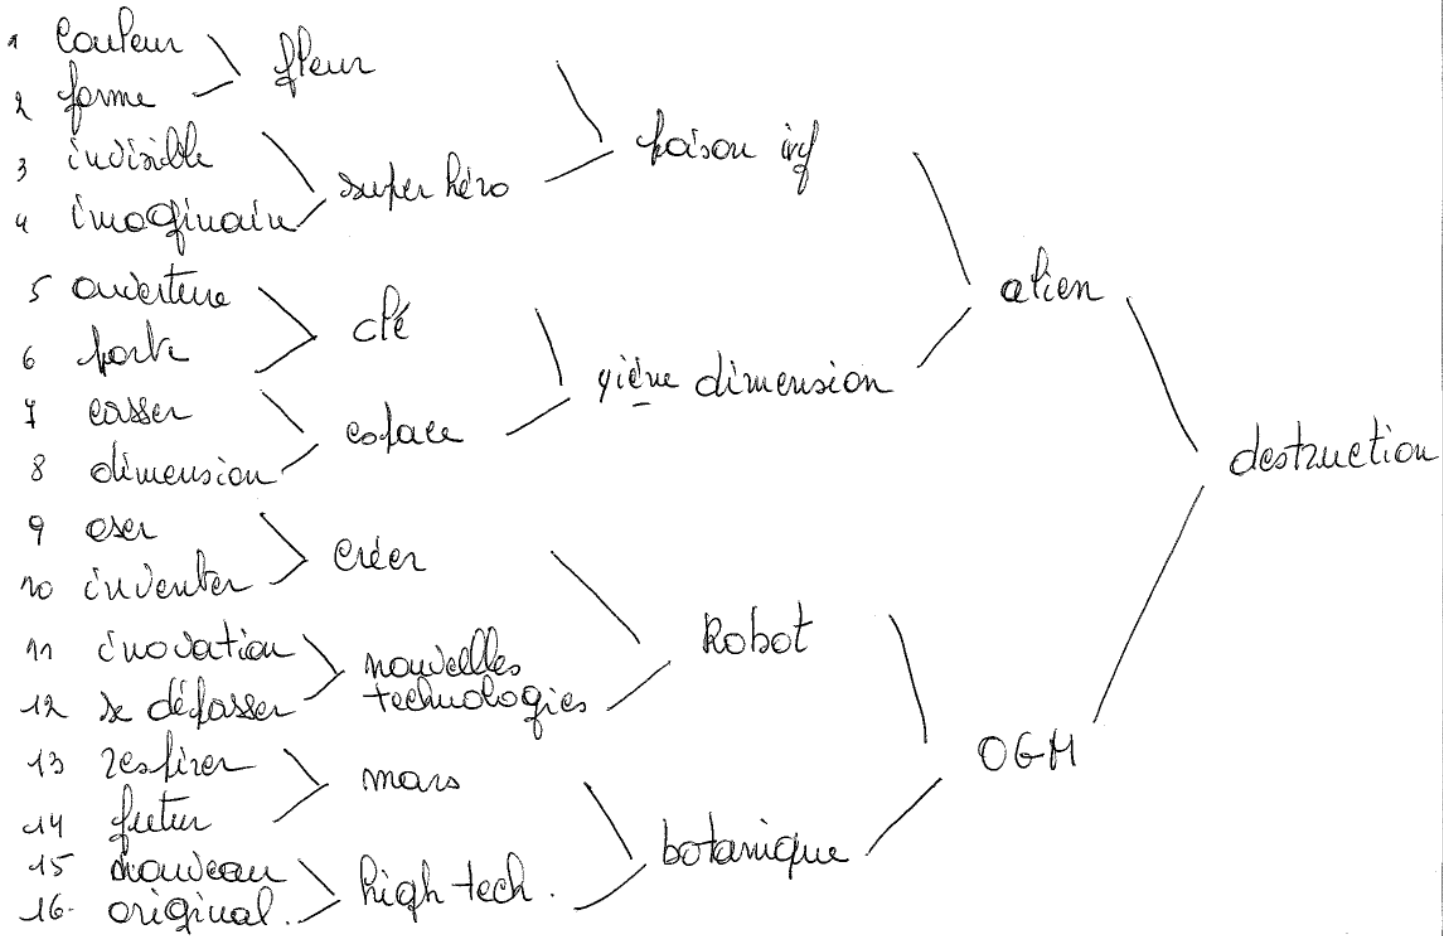 1 couleur
2 forme
3 invisible
4 imaginair
5 ouverture
6 porte
7 casser
8 dimension
9 oser
10 inventer
11 inovation
12 se dépasser
13 respirer
14 futur
15 nouveau
16. original.
fleur
super héro
clé
espace
créer
nouvelles
technologies
mars
high tech.
poison ivy
4ième dimension
Robot
botanique
alien
OGM
destruction